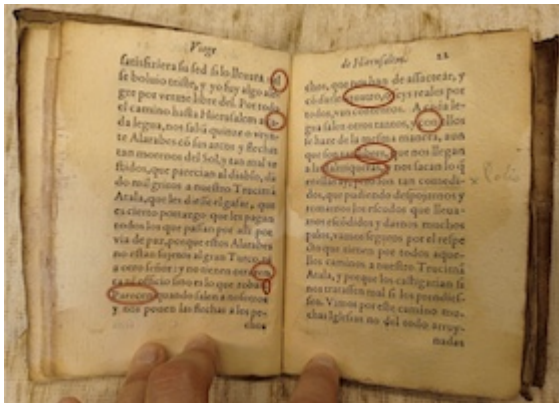 Viage
satisfiziera su sed si lo lleuara, ad
se boluio triste, y yo fuy algo ale-
gre por verme libre del. Por todo
el camino hasta Hierusalem a ca-
da legua, nos saliã quinze o veyn-
te Alarabes cõ sus arcos y flechas
tan morenos del Sol, y tan mal ve
stidos, que parecian al diablo, dã
do mil gritos a nuestro Trucimã
Atala, que les diesse el gafar, que
es cierto portazgo que les pagan
todos los que passan por alli por
via de paz, porque estos Alarabes
no estan sujetos al gran Turco, ni
a otro señor: y no tienen otra
officio sino es lo que roban
Parecen quando salen a nosotros
y nos ponen las flechas a los pe-
chos
de Hierusalem. 22
chos, que nos han de assaetear, y
cõ darles quatro, o seys reales por
todos, van contentos. A cada le-
gua salen otros tantos, y con ellos
se haze de la mesma manera, aun
que son tan que nos llegan
a las y nos sacan lo q̃
pero son tan comedi-
dos, que pudiendo despojarnos y
tomarnos los escudos que lleua-
mos escõdidos y darnos muchos
palos, vamos seguros por el respe
cto que tienen por todos aque-
llos caminos a nuestro Trucimã
Atala, y porque los castigarian si
nos tratassen mal si los prendies-
sen. Vimos por este camino mu-
chas Iglesias no del todo arruy-
nadas